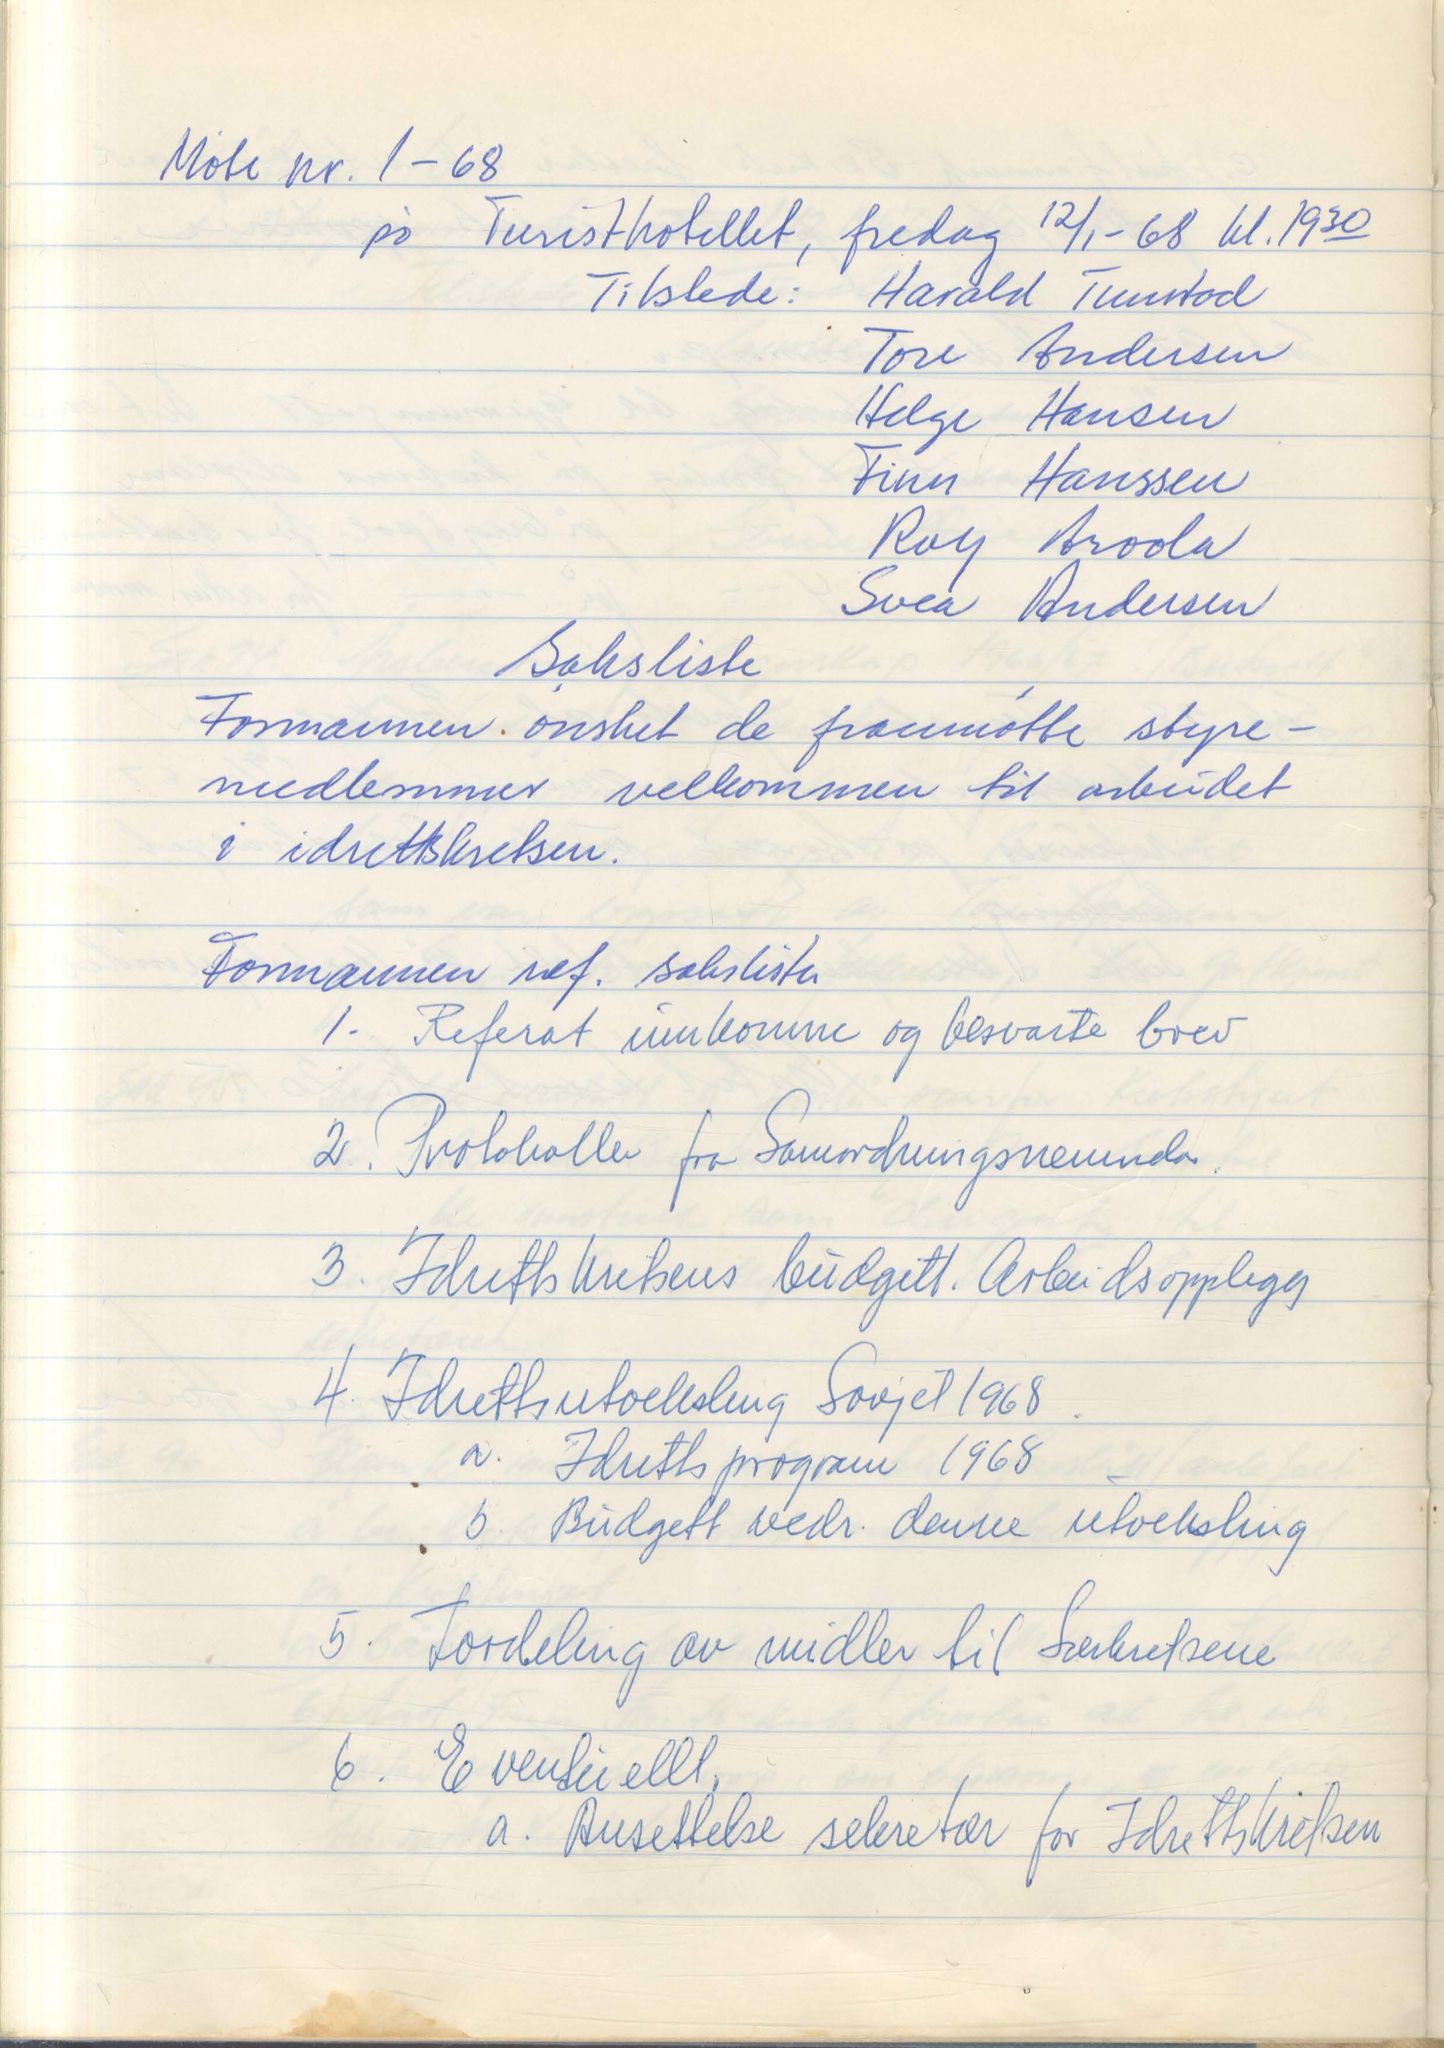 Møte nr. 1-68
på Turisthotellet, fredag 12/1-68 kl. 1930
Tilstede: Harald Tunstad
Tore Andersen
Helge Hansen
Finn Hanssen
Roly Arvola
Svea Andersen
Saksliste
Formannen ønsket de frammøtte styre-
medlemmer velkommen til arbeidet
i idrettskretsen.
Formannen ref. sakslista
1. Referat innkomne og besvarte brev
2. Protokoller fra Samordningsnemnda.
3. Idrettskretsens budgett. Arbeidsopplegg
4. Idrettsutveksling Sovjet 1968.
a. Idrettsprogram 1968
b. Budgett vedr. denne utveksling
5. Fordeling av midler til Særkretsene
6. Eventuellt.
a. Ansettelse sekretær for Idrettskretsen